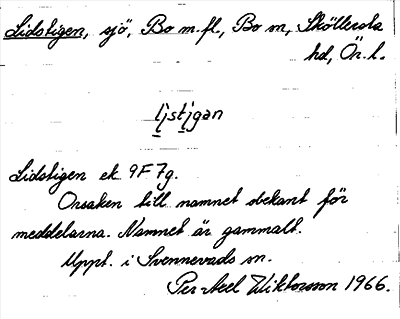 Lidstigen, sjö, Bo m.fl., Bo sn, Sköllersta
hd, Ör. l.
li̱sti̱gan
Lidstigen ek 9F7g.
Orsaken till namnet obekant för
meddelarna. Namnet är gammalt.
Uppt. i Svennevads sn.
Per-Axel Wiktorsson 1966.